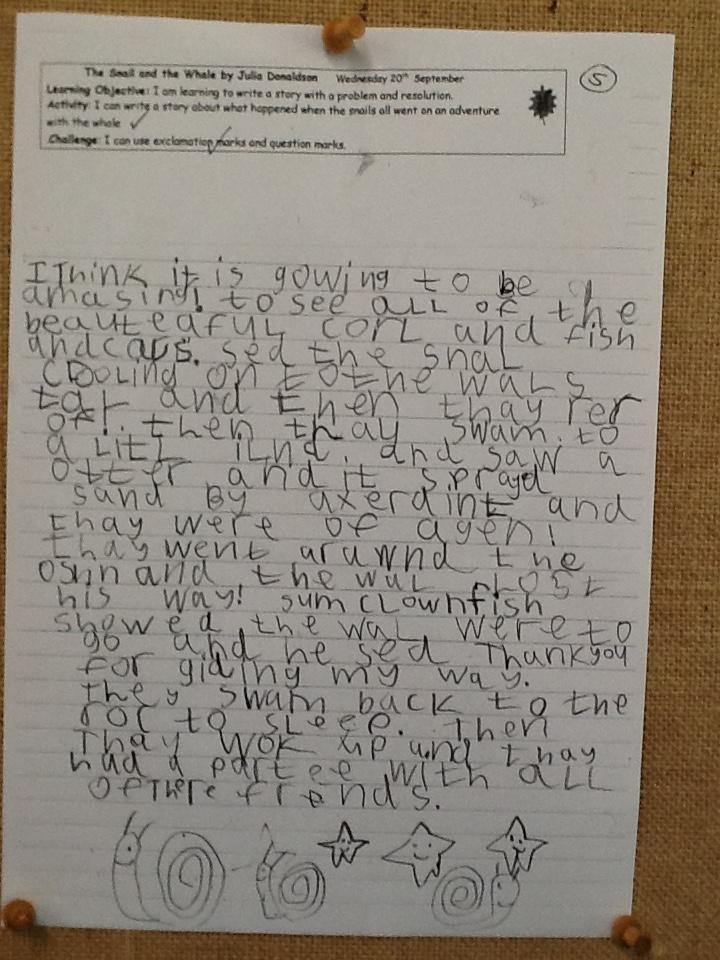 The Snail and the Whale by Julia Donaldson Wednesday 20th September
Learning Objective: I am learning to write a story with a problem and resolution.
Activity: I can write a story about what happened when the snails all went on an adventure
with the whale
Challenge: I can use exclamation marks and question marks.
5
I Think it is gowing to be
amasing! to see all of the
beauteaful corl and fish
andcavs. sed the snal
cooling on tothe wals
tal and then thay rer
of!. then thay swam. to
a litl ilnd. and saw a
otter and it sprayd
sand By axerdint and
thay were of agen!
thay went arawnd the
oshn and the wal lost
his way! sum clownfish
showed the wal were to
go and he sed Thankyou
for giding my way.
they swam back to the
roc to sleep. Then
Thay wok up and thay
had a partee with all
of There friends.